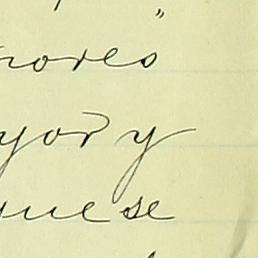 nores"
yor y
que se